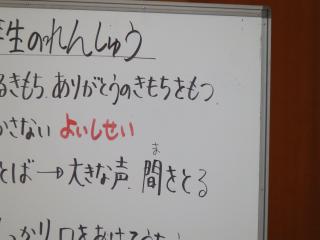 生のれんしゅう
るきもち、ありがとうのきもちをもつ
かさない よいしせい
とば→大きな声、間をとる
ま